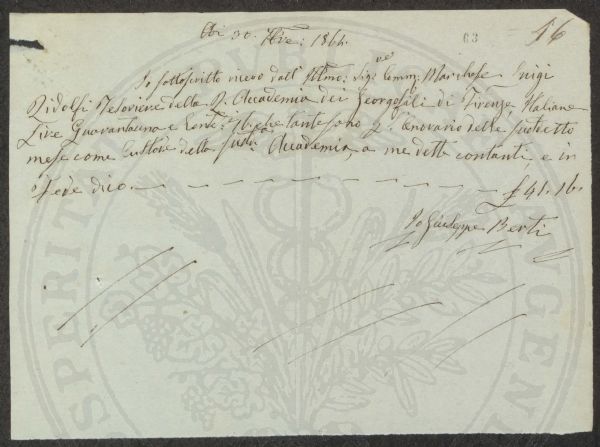 63
16
Adi 30. 9bre: 1864.
Io sottoscritto ricevo dall' Illmo: Sigre Comm: Marchese Luigi
Ridolfi Tesoriere della R. Accademia dei Georgofili di Firenze Italiane
Lire Quarantauna e Cent: 16 che tante sono p. onorario dello suddetto
mese come Custode della sudda Accademia, a me detti contanti e in
fede dico. — — — — — — — — £ 41. 16.
Io Giuseppe Berti
PROSPERITA